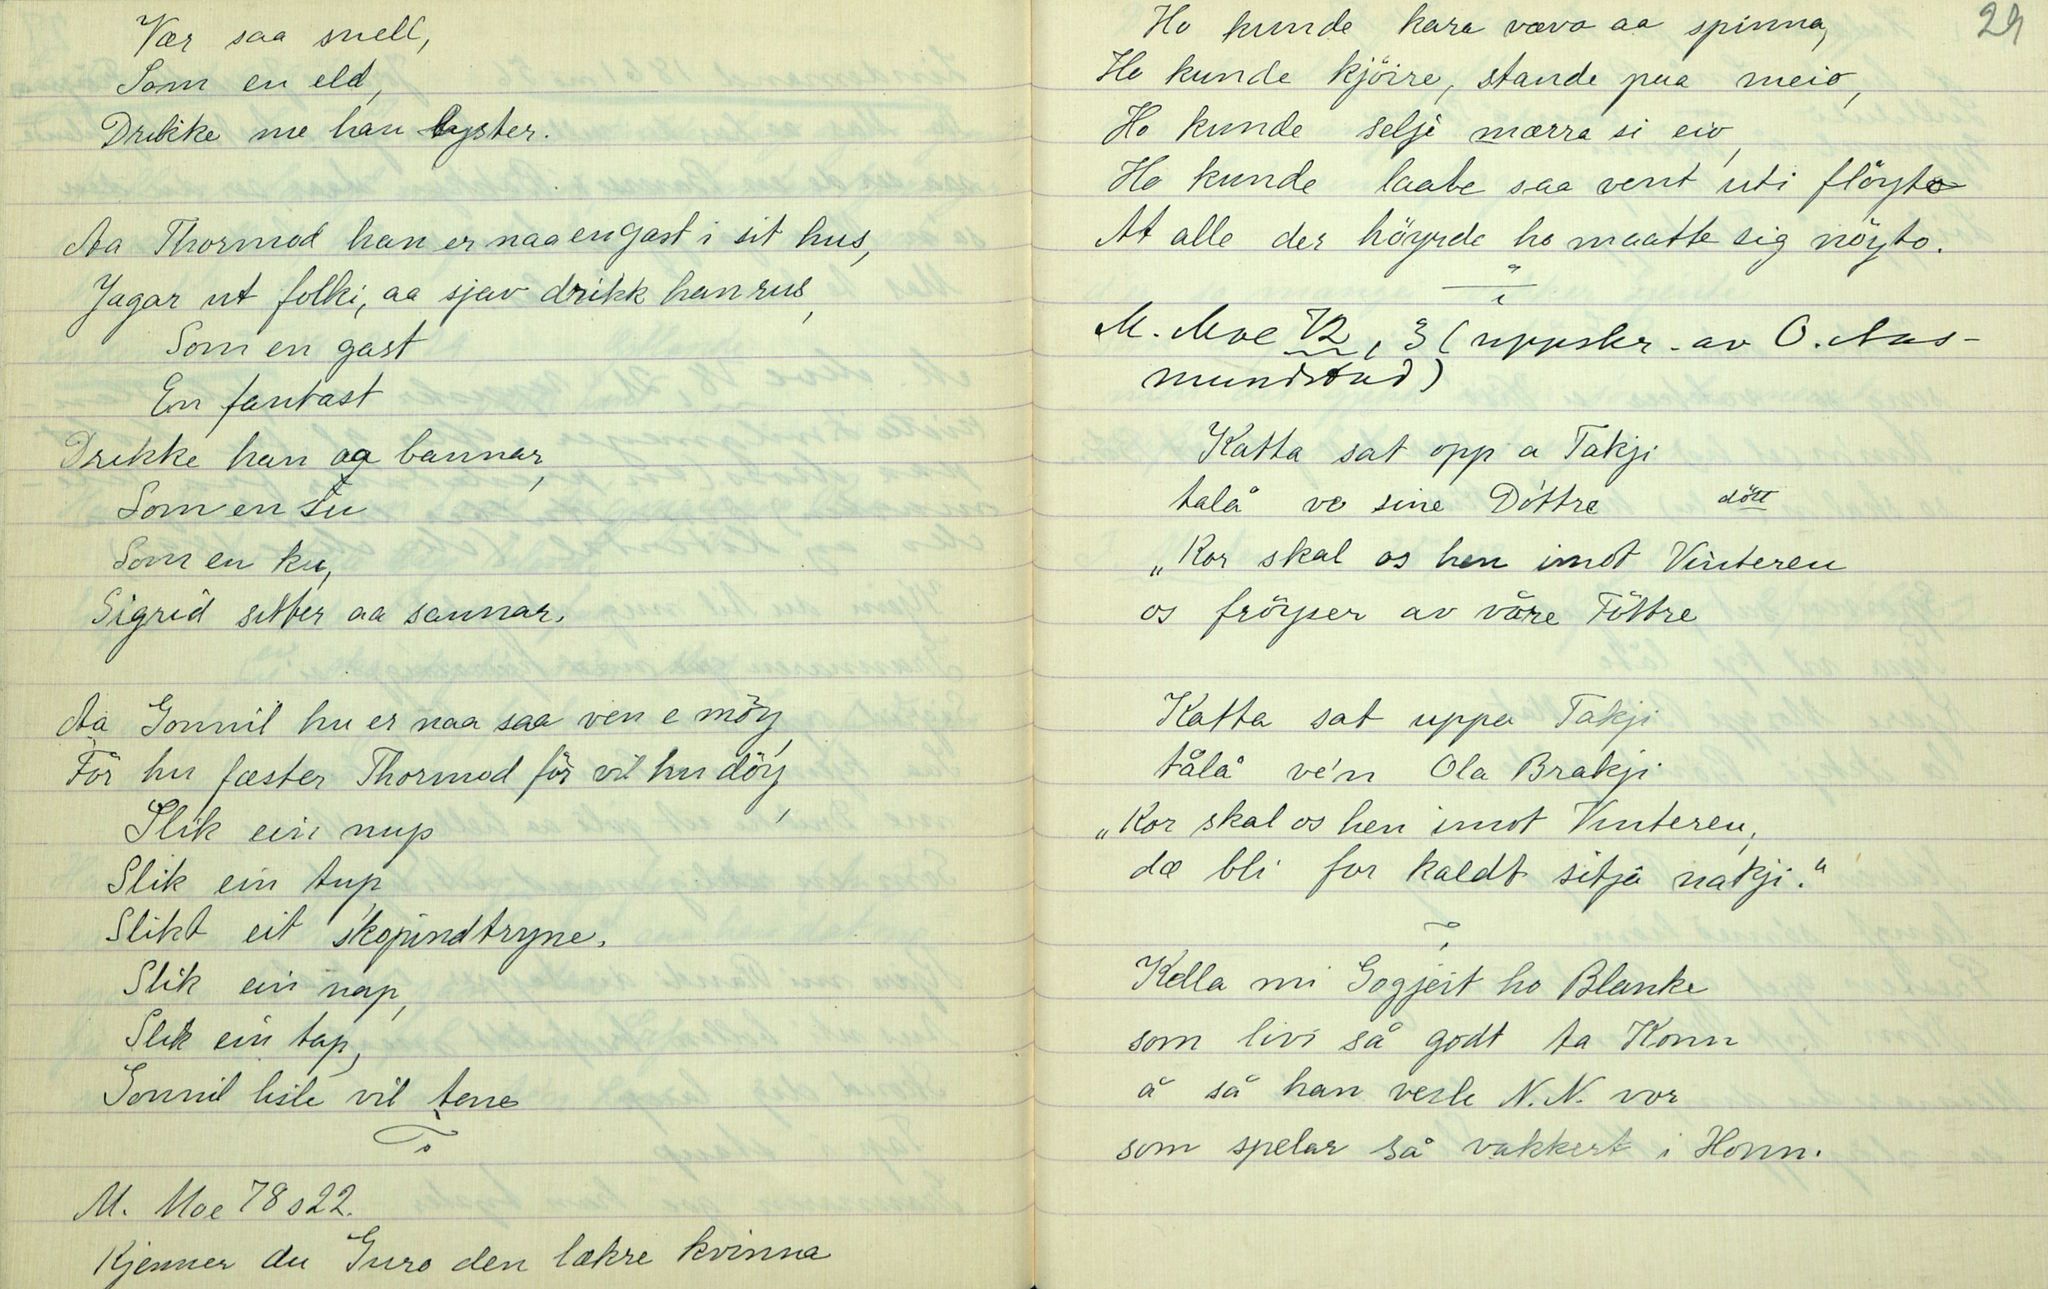 Vær saa snell,
Som en eld,
Drikke me han lyster.
Aa Thormod han er naa en gast i sit hus,
Jagar ut folki, aa sjav drikk han rus,
Som en gast
En fantast
Drikke han aa bannar,
Som en su
Som en ku,
Sigrid sitter aa sannar.
Aa Gonnil hu er naa saa ven e möy,
För hu fæster Thormod för vil hu döy,
Slik ein nup
Slik ein tup,
Slikt eit skopindtryne.
Slik ein nap,
Slik ein tap,
Gonnil lisle vil tene
M. Moe 78 s 22.
Kjenner du Guro den lækre kvinna
29
Ho kunde kara væva aa spinna,
Ho kunde kjöire, stande paa meio,
Ho kunde selje mærra si eio,
Ho kunde laate saa vent uti flöyto
At alle der höyrde ho maatte sig nöyto.
M. Moe 72, 3 (uppskr. av O. Aas-
mundstad)
Katta sat opp a Takji
talå ve sine Döttre dött
„Kor skal os hen imot Vinteren
os fröyser av våre Föttre
Katta sat uppa Takji
tålå ve'n Ola Brakji
„Kor skal os hen imot Vinteren,
dæ bli for kaldt sitjå nakji."
Kella mi Gogjeit ho Blanke
som livi så godt ta Konn
å så han vesle N.N. vor
som spelar så vakkert i Honn.